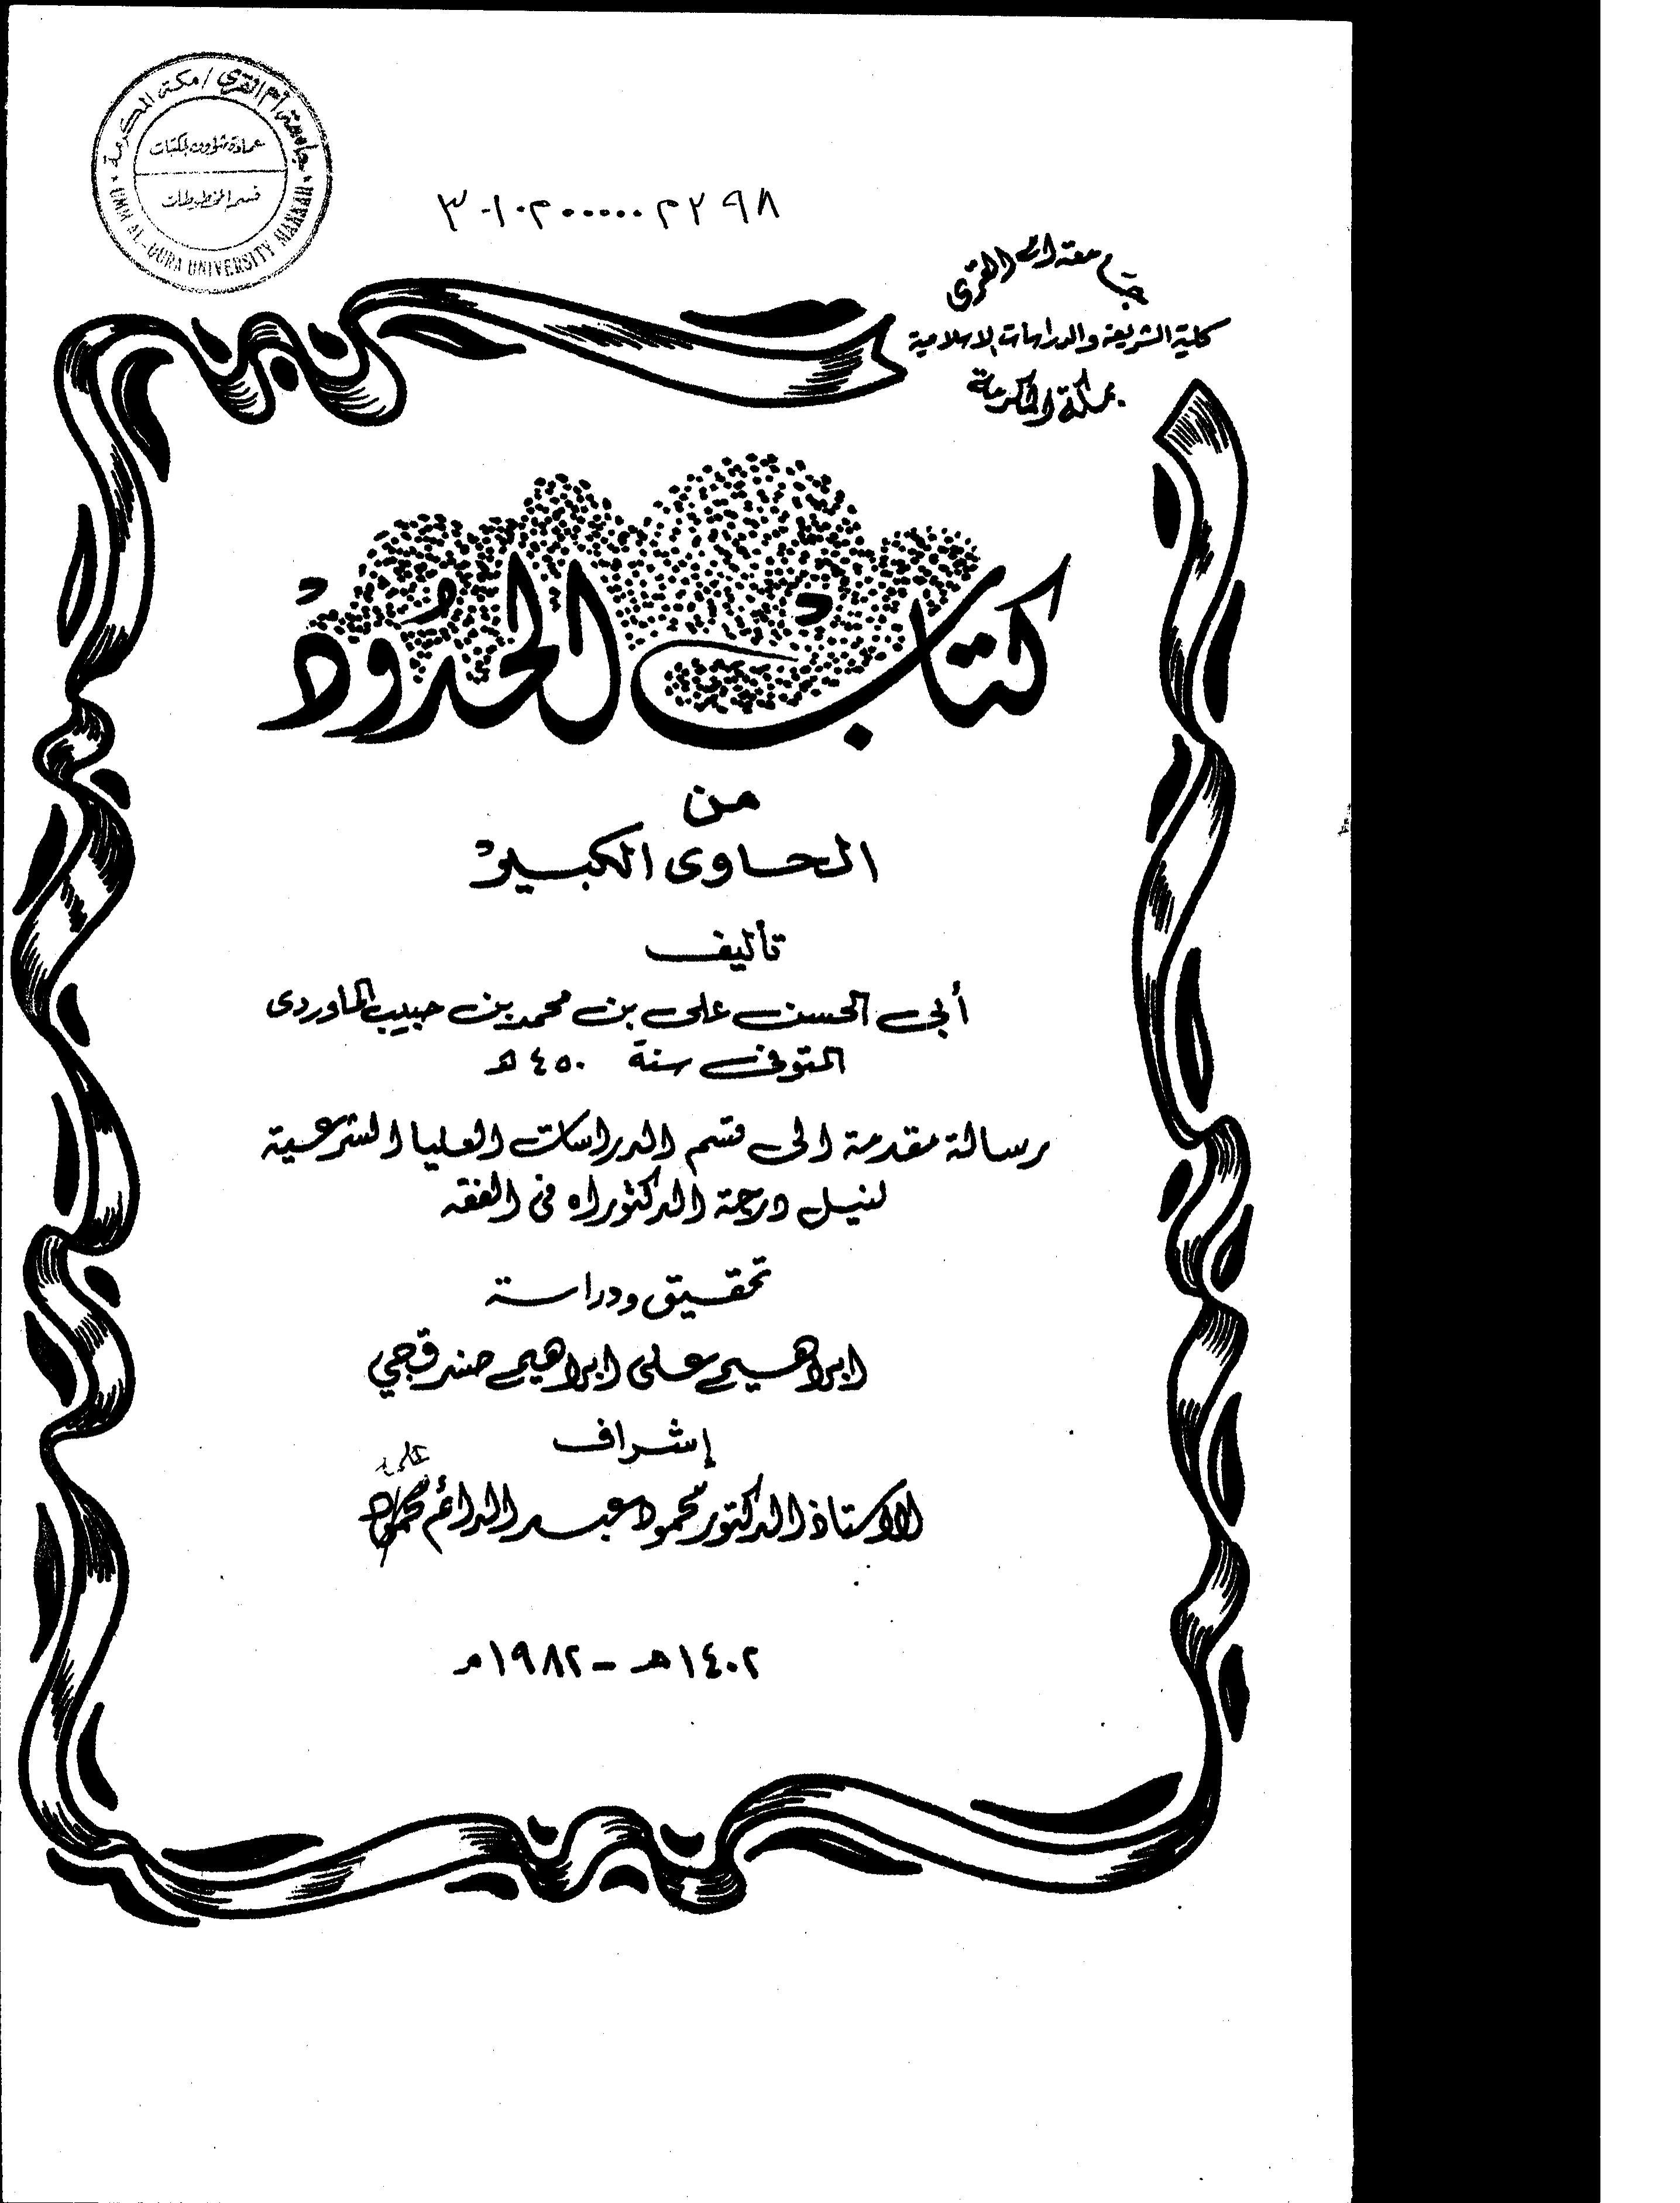 جامعة أم القرى / مكة المكرمة
عمادة شؤون المكتبات
قسم المخطوطات
UMM AL-QURA UNIVERSITY MAKKAH
٣٠١٠٢٠٠٠٠٠٠٢٢٩٨
جامعة ام القرى
كلية الشريعة والدراسات الاسلامية
بمكة المكرمة
كتاب الحُدُود
من
الحاوى الكبير
تأليف
أبى الحسن على بن محمد بن حبيب الماوردى
المتوفى سنة ٤٥٠ هـ
رسالة مقدمة الى قسم الدراسات العليا الشرعية
لنيل درجة الدكتوراه فى الفقه
تحقيق ودراسة
ابراهيم على ابراهيم صندقجي
إشراف
الاستاذ الدكتور محمود عبد الدائم
على
١٤٠٢هـ - ١٩٨٢م